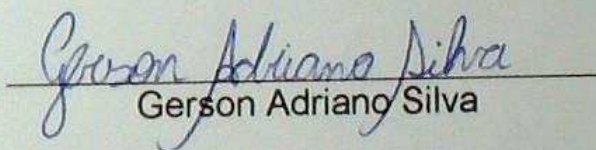 Gerson Adriano Silva
Gerson Adriano Silva